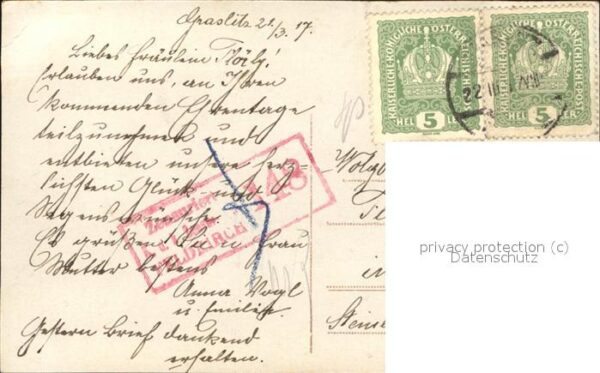 Graslitz 21/3. 17.
Liebes Fräulein Flöly!
Erlauben uns, an Ihren
kommenden Ehrentage
teilzunehmen und
entbieten unsere herz-
lichsten Glück- und
Segenswünsche.
Es grüßen Sie u. Frau
Mutter bestens
Anna Vogl
u. Emilie.
Gestern Brief dankend
erhalten.
Zensuriert
FELDKIRCH
148
KAISERLICH KÖNIGLICHE ÖSTERREICHISCHE POST
5
HELLER
KAISERLICH KÖNIGLICHE ÖSTERREICHISCHE POST
5
HELLER
22 III
privacy protection (c)
Datenschutz